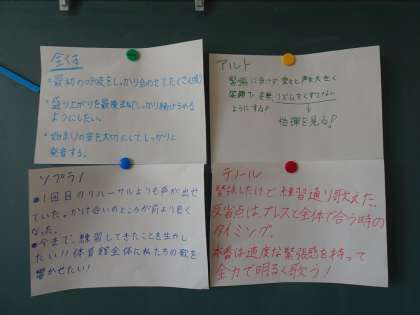 全体
・最初の
をしっかり合わせて
・盛り上がりを最後までしっかり続けられる
ようにしたい。
・始まりの音を大切にしてしっかりと
発音する。
アルト
緊張に
声を大きく
笑顔で
ようにする！
指揮を見る！
ソプラノ
●1回目のリハーサルよりも声が出せ
ていた。かけ合いのところが前より良く
なった。
●今まで、練習してきたことを生かし
たい!!体育館全体に私たちの歌を
響かせたい！
テノール
緊張したけど、練習通り歌えた。
反省点はブレスと全体で合う時の
タイミング。
本番は適度な緊張感を持って
全力で明るく歌う！